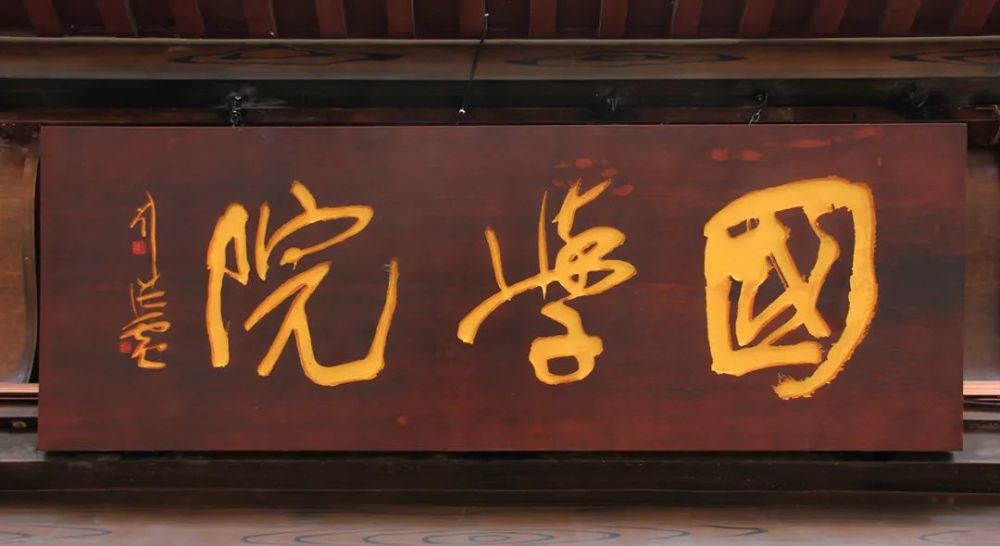 國學院